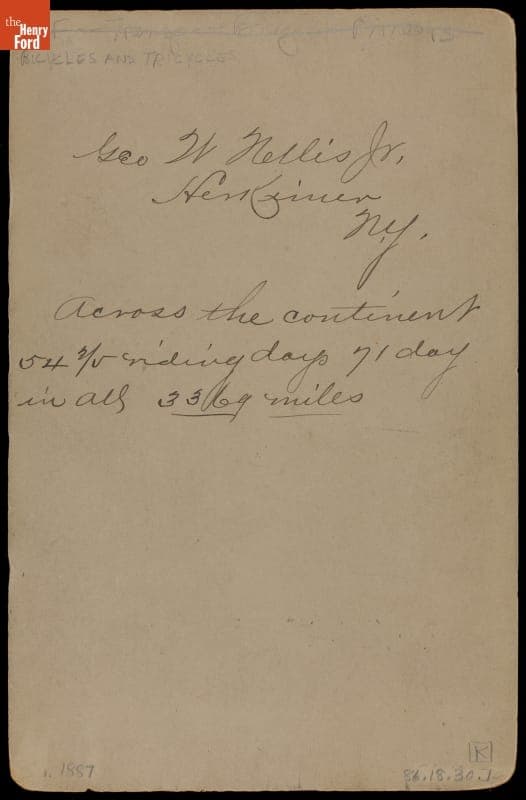 the
Henry
Ford
BICYCLES AND TRICYCLES
Geo W Nellis Jr.
Herkimer
N.Y.
Across the continent
54 2/5 riding days 71 day
in all 3369 miles
c. 1887
K
86.18.30.1